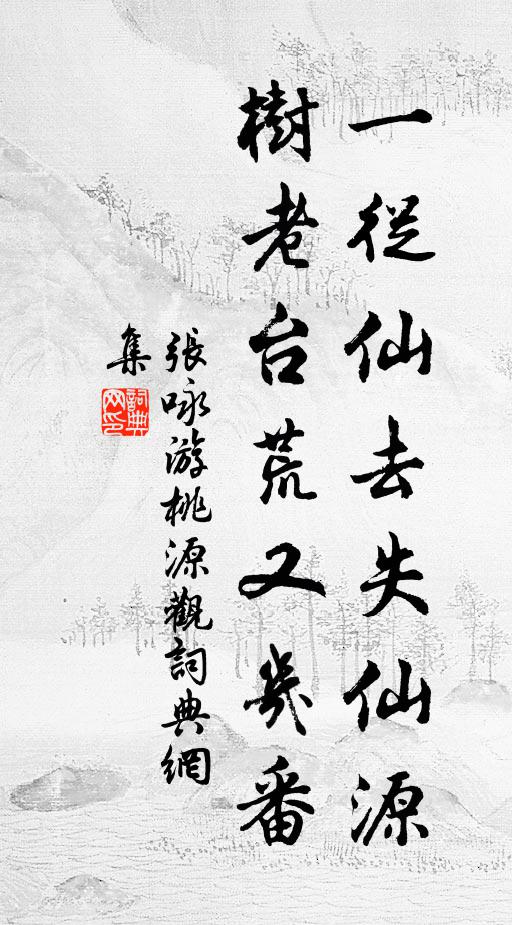 一從仙去失仙源
樹老台荒又幾番
張咏游桃源觀詞典網
集
詞典网印